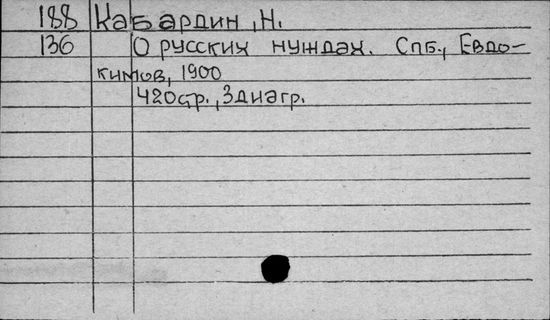 188 Кабардин, Н.
136 О русских нуждах. Спб., Евдо-
кимов, 1900
420стр., 3диагр.